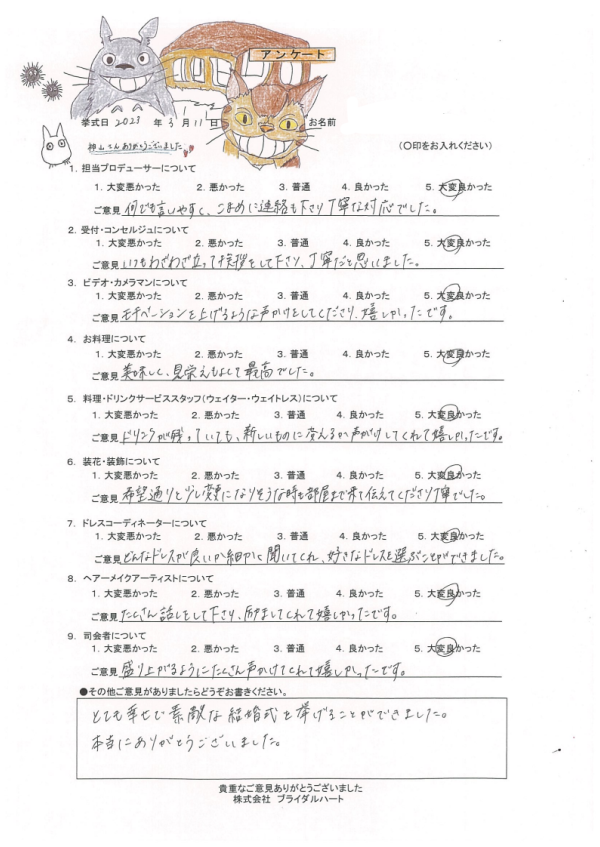 アンケート
挙式日 2023 年 3 月 11 日 お名前
神山さんありがとうございました
(〇印をお入れください)
1. 担当プロデューサーについて
1. 大変悪かった 2. 悪かった 3. 普通 4. 良かった 5. 大変良かった
ご意見 何でも言いやすく、こまめに連絡も下さり丁寧な対応でした。
2. 受付・コンセルジュについて
1. 大変悪かった 2. 悪かった 3. 普通 4. 良かった 5. 大変良かった
ご意見 いつもわざわざ立って挨拶をして下さり、丁寧だと思いました。
3. ビデオ・カメラマンについて
1. 大変悪かった 2. 悪かった 3. 普通 4. 良かった 5. 大変良かった
ご意見 モチベーションを上げるような声かけをしてくださり、嬉しかったです。
4. お料理について
1. 大変悪かった 2. 悪かった 3. 普通 4. 良かった 5. 大変良かった
ご意見 美味しく、見栄えもよくて最高でした。
5. 料理・ドリンクサービススタッフ(ウェイター・ウェイトレス)について
1. 大変悪かった 2. 悪かった 3. 普通 4. 良かった 5. 大変良かった
ご意見 ドリンクが残っていても、新しいものに変えるか声がけしてくれて嬉しかったです。
6. 装花・装飾について
1. 大変悪かった 2. 悪かった 3. 普通 4. 良かった 5. 大変良かった
ご意見 希望通りと少し変更になりそうな時も部屋まで来て伝えてくださり丁寧でした。
7. ドレスコーディネーターについて
1. 大変悪かった 2. 悪かった 3. 普通 4. 良かった 5. 大変良かった
ご意見 どんなドレスが良いか細かく聞いてくれ、好きなドレスを選ぶことができました。
8. ヘアーメイクアーティストについて
1. 大変悪かった 2. 悪かった 3. 普通 4. 良かった 5. 大変良かった
ご意見 たくさん話しをして下さり、励ましてくれて嬉しかったです。
9. 司会者について
1. 大変悪かった 2. 悪かった 3. 普通 4. 良かった 5. 大変良かった
ご意見 盛り上がるようにたくさん声かけてくれて嬉しかったです。
●その他ご意見がありましたらどうぞお書きください。
とても幸せで素敵な結婚式を挙げることができました。
本当にありがとうございました。
貴重なご意見ありがとうございました
株式会社 ブライダルハート